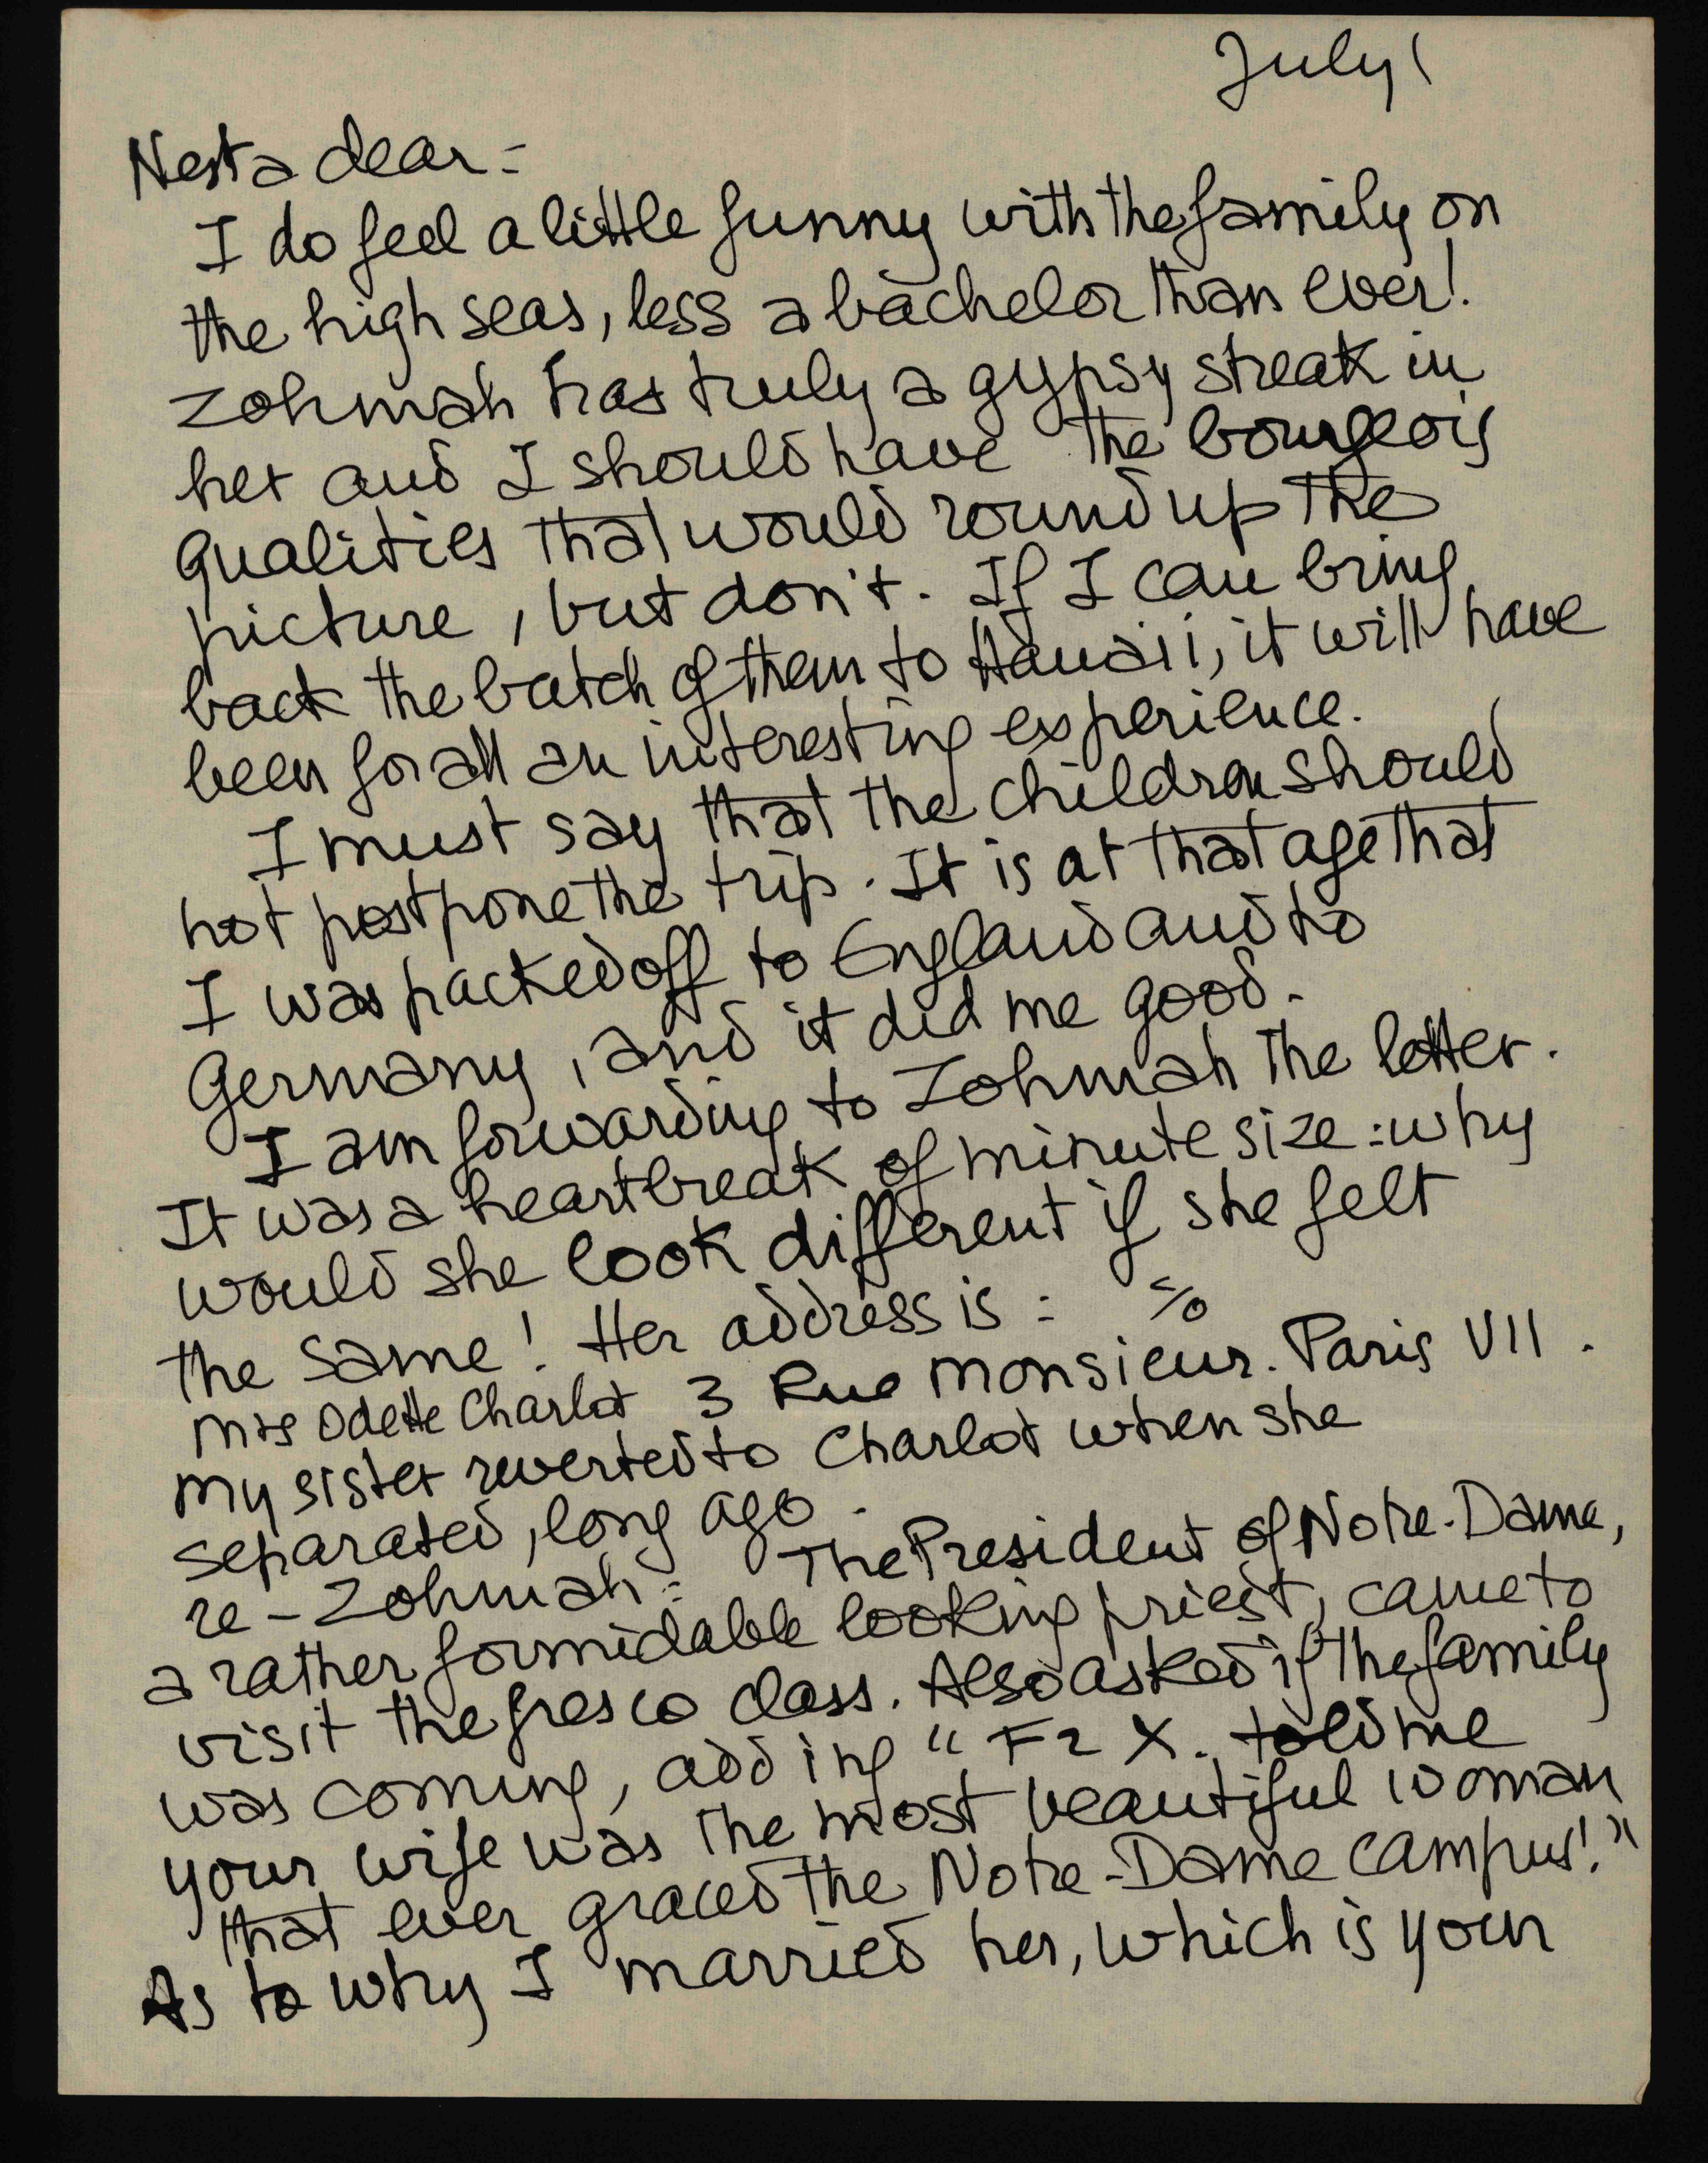 July 1
Nesta dear-
I do feel a little funny with the family on
the high seas, less a bachelor than ever!
Zohmah has truly a gypsy streak in
her and I should have the bourgeois
qualities that would round up the
picture, but don't. If I can bring
back the batch of them to Hawaii, it will have
been for all an interesting experience.
I must say that the children should
not postpone the trip. It is at that age that
I was packed off to England and to
Germany, and it did me good.
I am forwarding to Zohmah the letter.
It was a heartbreak of minute size: why
would she look different if she felt
the same! Her address is: c/o
Mrs Odette Charlot 3 Rue Monsieur. Paris VII.
My sister reverted to Charlot when she
separated, long ago.
re-Zohmah: The President of Notre-Dame,
a rather formidable looking priest, came to
visit the fresco class. Also asked if the family
was coming, adding "Fr X. told me
your wife was the most beautiful woman
that ever graced the Notre-Dame campus!"
As to why I married her, which is your